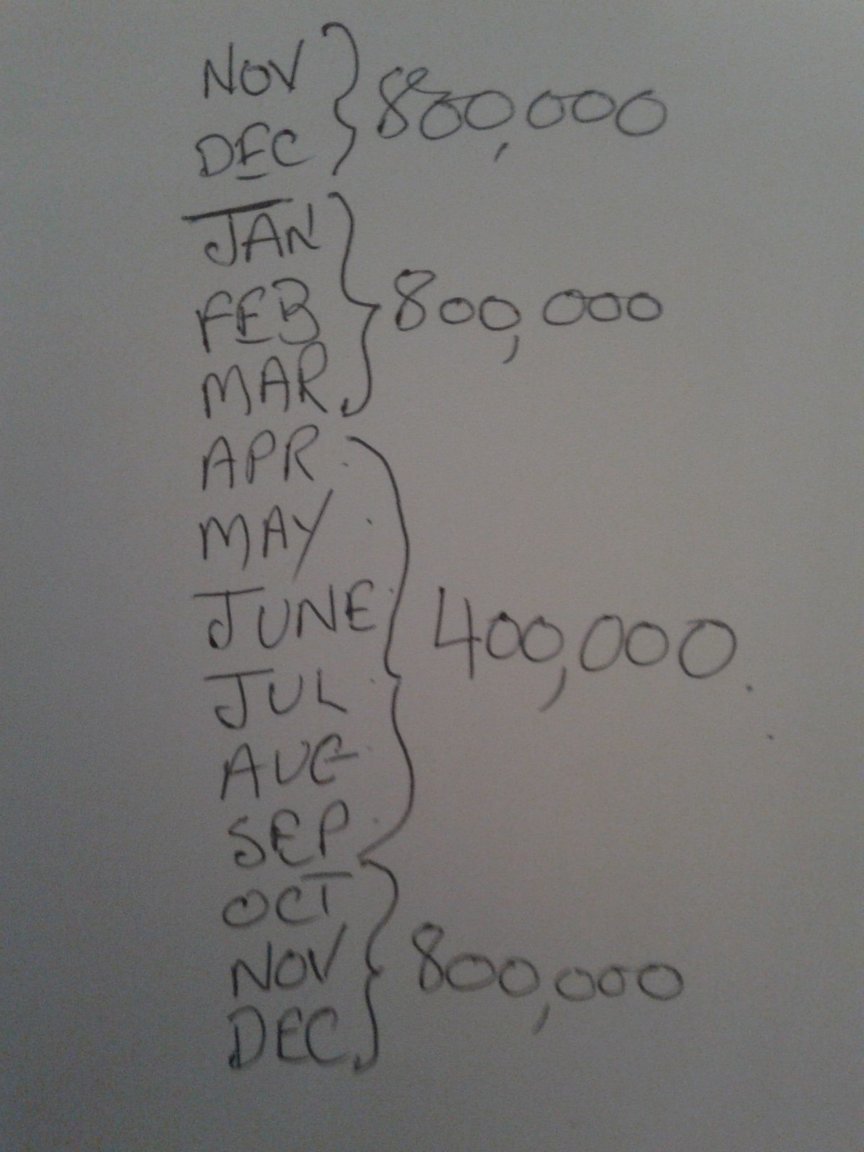 NOV
DEC
800,000
JAN
FEB
MAR
800,000
APR
MAY
JUNE
JUL
AUG
SEP
400,000
OCT
NOV
DEC
800,000